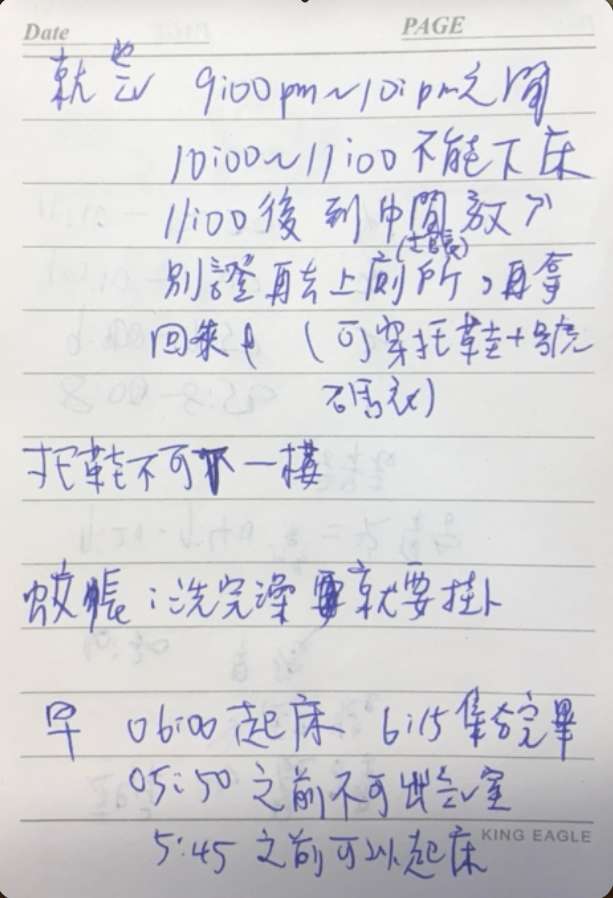 Date PAGE
就 9:00pm~10:pm之間
10:00~11:00 不能下床
11:00後 到中間放
別證再去上廁所,再拿
回來 (可穿托鞋+號
碼衣)
托鞋不可下一樓
蚊帳:洗完澡就要掛
早 06:00起床 6:15集合完畢
05:50 之前不可出
5:45 之前可以起床
KING EAGLE